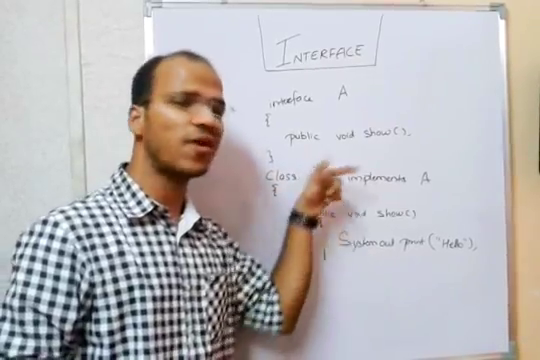 INTERFACE
interface A
{
public void show();
}
Class implements A
{
void show()
{
System out print ("Hello");